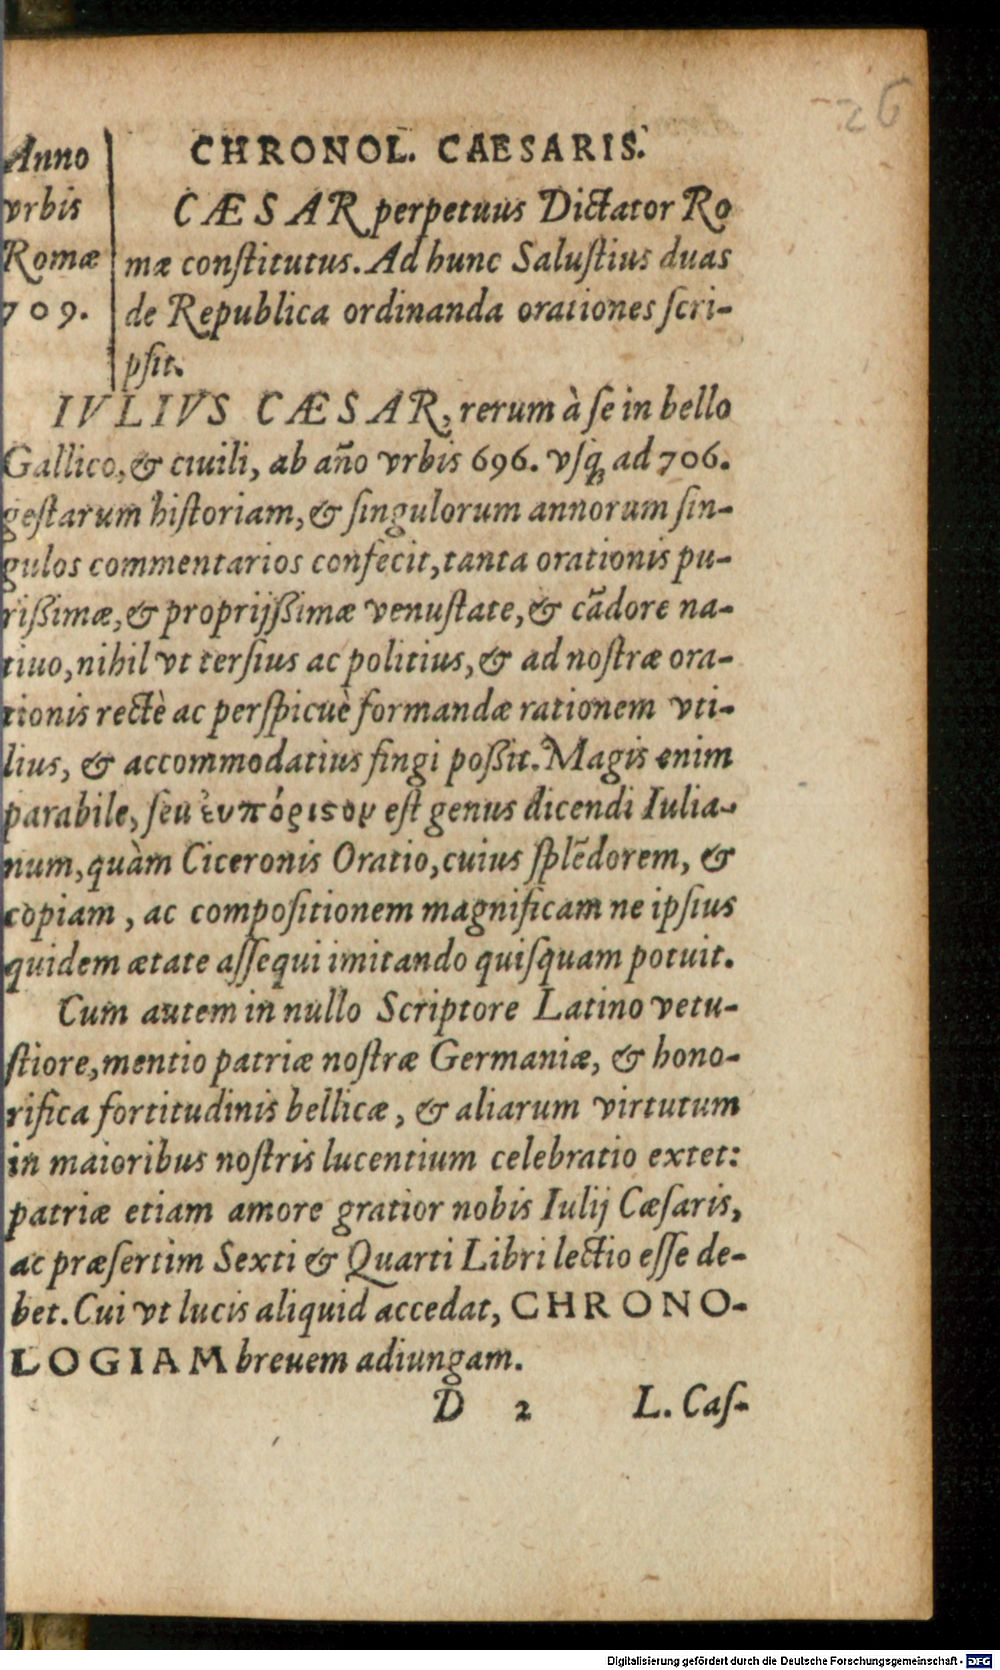 26
CHRONOL. CAESARIS.
Anno
vrbis
Romæ
709.
CÆSAR perpetuus Dictator Ro
mæ conſtitutus. Ad hunc Saluſtius duas
de Republica ordinanda orationes ſcri-
pſit.
IVLIVS CÆSAR, rerum à ſe in bello
Gallico, & ciuili, ab año vrbis 696. vſq; ad 706.
geſtarum hiſtoriam, & ſingulorum annorum ſin-
gulos commentarios confecit, tanta orationis pu-
rißimæ, & proprijßimæ venuſtate, & cãdore na-
tiuo, nihil vt terſius ac politius, & ad noſtræ ora-
tionis rectè ac perſpicuè formandæ rationem vti-
lius, & accommodatius fingi poßit. Magis enim
parabile, ſeu ἐυπόριστον eſt genus dicendi Iulia-
num, quàm Ciceronis Oratio, cuius ſplẽdorem, &
copiam, ac compoſitionem magnificam ne ipſius
quidem ætate aſſequi imitando quiſquam potuit.
Cum autem in nullo Scriptore Latino vetu-
ſtiore, mentio patriæ noſtræ Germaniæ, & hono-
rifica fortitudinis bellicæ, & aliarum virtutum
in maioribus noſtris lucentium celebratio extet:
patriæ etiam amore gratior nobis Iulij Cæſaris,
ac præſertim Sexti & Quarti Libri lectio eſſe de-
bet. Cui vt lucis aliquid accedat, CHRONO-
LOGIAM breuem adiungam.
D 2 L. Caſ-
Digitalisierung gefördert durch die Deutsche Forschungsgemeinschaft - DFG